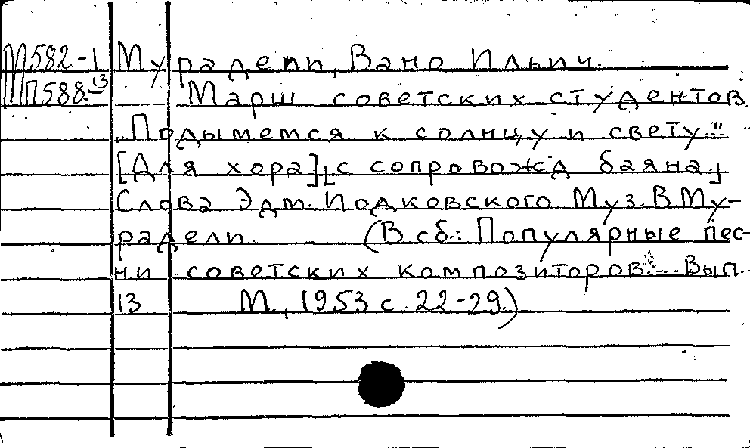 М582-1 Мурадели, Вано Ильич.
П588-13 Марш советских студентов
„Подымемся к солнцу и свету."
[Для хора] [с сопровожд баяна]
Слова Эдм. Иодковского Муз. В Му-
радели. (В сб.: Популярные пес-
ни советских композиторов. Вып.
13 М., 1953 с. 22-29.)